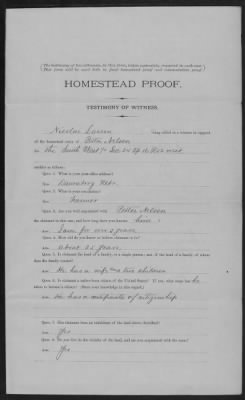 (The testimony of two witnesses, in this form, taken separately, required in each case.
This form will be used both in final homestead proof and commutation proof.)
HOMESTEAD PROOF.
TESTIMONY OF WITNESS.
Nicolai Larsen being called as a witness in support
of the homestead entry of Peter Nelson
the South West ¼ Sec 24
testifies as follows:
Ques. 1. What is your post-office address?
Dannebrog Nebr.
Ques. 2. What is your occupation?
Farmer
Ques. 3. Are you well acquainted with Peter Nelson
the claimant in this case, and how long have you known him?
I am for over years
Ques. 4. How old do you believe claimant to be?
about 35 years.
Ques. 5. Is claimant the head of a family, or a single person; and, if the head of a family, of whom
does the family consist?
He has a wife and two children
Ques. 6. Is claimant a native-born citizen of the United States? If not, what steps has he
taken to become a citizen? State your knowledge in this regard.
He has a certificate of citizenship
Ques. 7. Has claimant been an inhabitant of the land above described?
Yes
Ques. 8. Do you live in the vicinity of the land, and are you acquainted with the same?
Yes